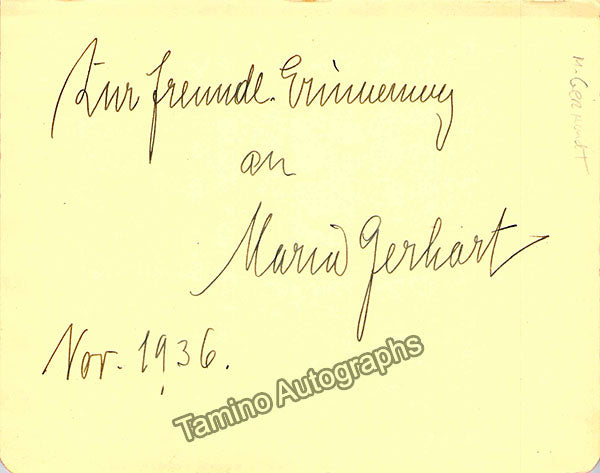 Zur freundl. Erinnerung
an
Maria Gerhart
Nov. 1936.
Tamino Autographs